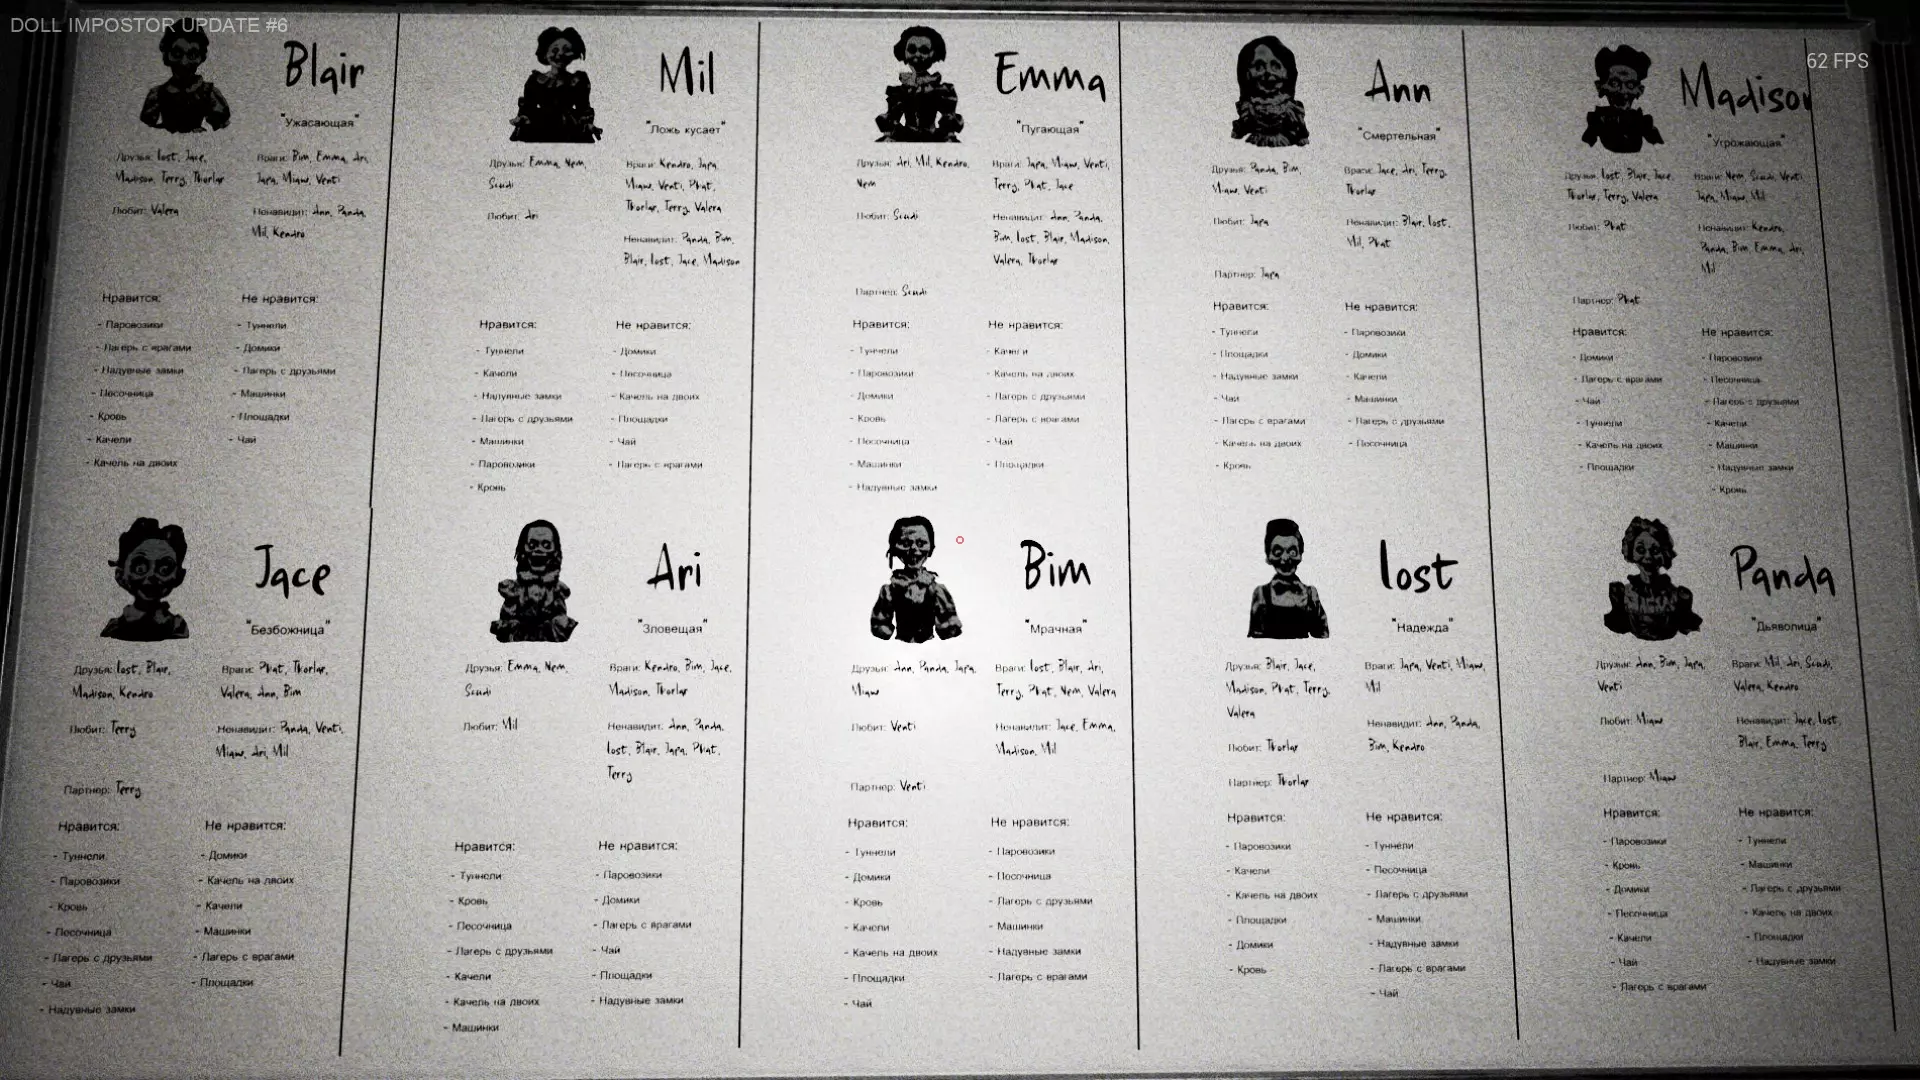 DOLL IMPOSTOR UPDATE #6
62 FPS
Blair
"Ужасающая"
Друзья: lost, Jace,
Madison, Terry, Thorlar
Враги: Bim, Emma, Ari,
Japa, Miaw, Venti
Любит: Valera
Ненавидит: Ann, Panda,
Mil, Kendro
Нравится:
- Паровозики
- Лагерь с врагами
- Надувные замки
- Песочница
- Кровь
- Качели
- Качель на двоих
Не нравится:
- Туннели
- Домики
- Лагерь с друзьями
- Машинки
- Площадки
- Чай
Mil
"Ложь кусает"
Друзья: Emma, Nem,
Scudi
Враги: Kendro, Japa,
Miaw, Venti, Phat,
Thorlar, Terry, Valera
Любит: Ari
Ненавидит: Panda, Bim,
Blair, lost, Jace, Madison
Нравится:
- Туннели
- Качели
- Надувные замки
- Лагерь с друзьями
- Машинки
- Паровозики
- Кровь
Не нравится:
- Домики
- Песочница
- Качель на двоих
- Площадки
- Чай
- Лагерь с врагами
Emma
"Пугающая"
Друзья: Ari, Mil, Kendro,
Nem
Враги: Japa, Miaw, Venti,
Terry, Phat, Jace
Любит: Scudi
Ненавидит: Ann, Panda,
Bim, lost, Blair, Madison,
Valera, Thorlar
Партнер: Scudi
Нравится:
- Туннели
- Паровозики
- Домики
- Кровь
- Песочница
- Машинки
- Надувные замки
Не нравится:
- Качели
- Качель на двоих
- Лагерь с друзьями
- Лагерь с врагами
- Чай
- Площадки
Ann
"Смертельная"
Друзья: Panda, Bim,
Miaw, Venti
Враги: Jace, Ari, Terry,
Thorlar
Любит: Japa
Ненавидит: Blair, lost,
Mil, Phat
Партнер: Japa
Нравится:
- Туннели
- Площадки
- Надувные замки
- Чай
- Лагерь с врагами
- Качель на двоих
- Кровь
Не нравится:
- Паровозики
- Домики
- Качели
- Машинки
- Лагерь с друзьями
- Песочница
Madison
"Угрожающая"
Друзья: lost, Blair, Jace,
Thorlar, Terry, Valera
Враги: Nem, Scudi, Venti,
Japa, Miaw, Mil
Любит: Phat
Ненавидит: Kendro,
Panda, Bim, Emma, Ari,
Mil
Партнер: Phat
Нравится:
- Домики
- Лагерь с врагами
- Чай
- Туннели
- Качель на двоих
- Площадки
Не нравится:
- Паровозики
- Песочница
- Лагерь с друзьями
- Качели
- Машинки
- Надувные замки
- Кровь
Jace
"Безбожница"
Друзья: lost, Blair,
Madison, Kendro
Враги: Phat, Thorlar,
Valera, Ann, Bim
Любит: Terry
Ненавидит: Panda, Venti,
Miaw, Ari, Mil
Партнер: Terry
Нравится:
- Туннели
- Паровозики
- Кровь
- Песочница
- Лагерь с друзьями
- Чай
- Надувные замки
Не нравится:
- Домики
- Качель на двоих
- Качели
- Машинки
- Лагерь с врагами
- Площадки
Ari
"Зловещая"
Друзья: Emma, Nem,
Scudi
Враги: Kendro, Bim, Jace,
Madison, Thorlar
Любит: Mil
Ненавидит: Ann, Panda,
lost, Blair, Japa, Phat,
Terry
Нравится:
- Туннели
- Кровь
- Песочница
- Лагерь с друзьями
- Качели
- Качель на двоих
- Машинки
Не нравится:
- Паровозики
- Домики
- Лагерь с врагами
- Чай
- Площадки
- Надувные замки
Bim
"Мрачная"
Друзья: Ann, Panda, Japa,
Miaw
Враги: lost, Blair, Ari,
Terry, Phat, Nem, Valera
Любит: Venti
Ненавидит: Jace, Emma,
Madison, Mil
Партнер: Venti
Нравится:
- Туннели
- Домики
- Кровь
- Качели
- Качель на двоих
- Площадки
- Чай
Не нравится:
- Паровозики
- Песочница
- Лагерь с друзьями
- Машинки
- Надувные замки
- Лагерь с врагами
lost
"Надежда"
Друзья: Blair, Jace,
Madison, Phat, Terry,
Valera
Враги: Japa, Venti, Miaw,
Mil
Любит: Thorlar
Ненавидит: Ann, Panda,
Bim, Kendro
Партнер: Thorlar
Нравится:
- Паровозики
- Качели
- Качель на двоих
- Площадки
- Домики
- Кровь
Не нравится:
- Туннели
- Песочница
- Лагерь с друзьями
- Машинки
- Надувные замки
- Лагерь с врагами
- Чай
Panda
"Дьяволица"
Друзья: Ann, Bim, Japa,
Venti
Враги: Mil, Ari, Scudi,
Valera, Kendro
Любит: Miaw
Ненавидит: Jace, lost,
Blair, Emma, Terry
Партнер: Miaw
Нравится:
- Паровозики
- Кровь
- Домики
- Песочница
- Качели
- Чай
- Лагерь с врагами
Не нравится:
- Туннели
- Машинки
- Лагерь с друзьями
- Качель на двоих
- Площадки
- Надувные замки